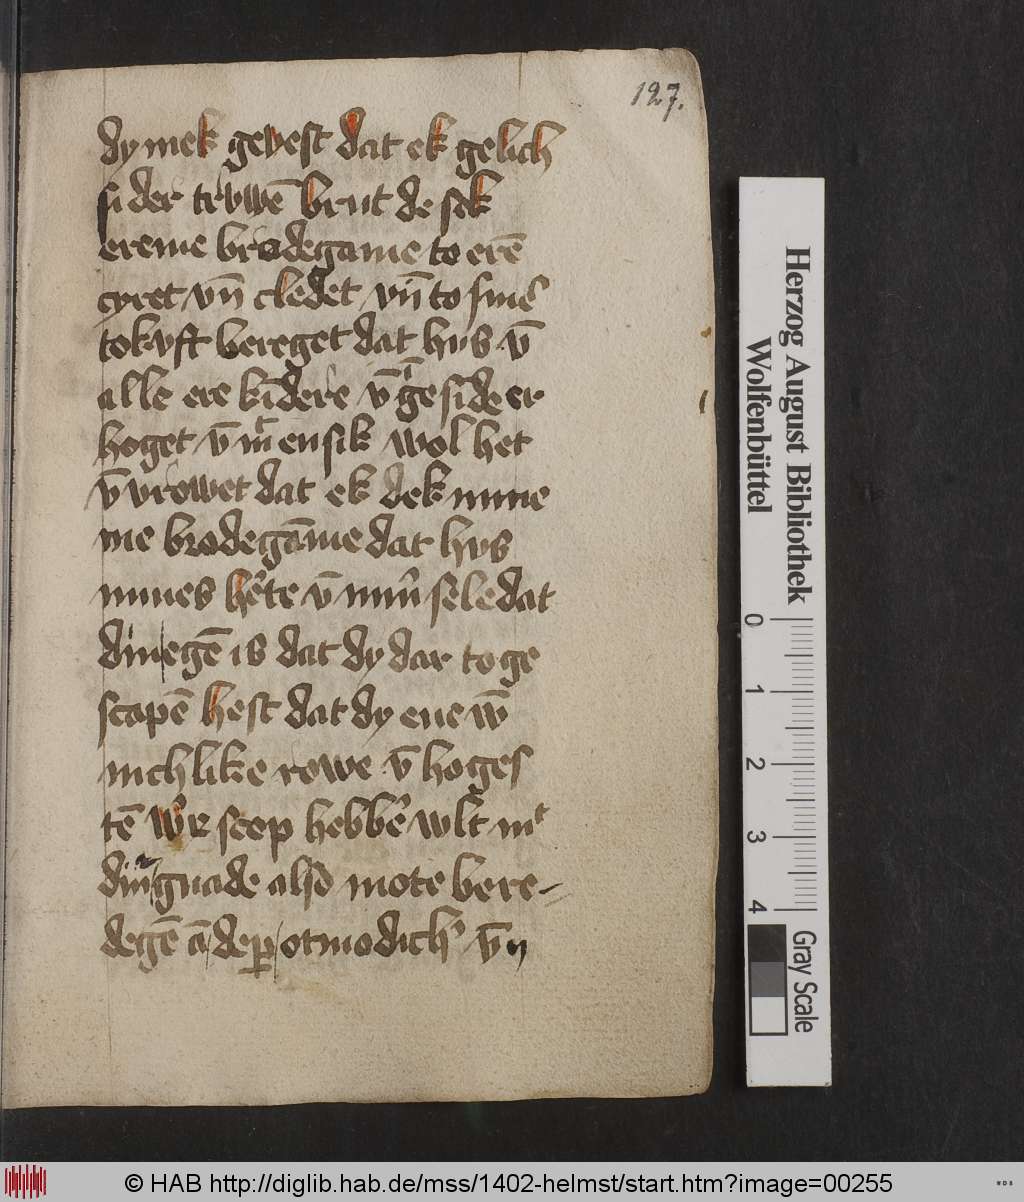 127.
dy mek gevest dat ek gelich
si der truwē brut de sek
ereme brodegame to erē
cyret vn̄ cledet vn̄ to siner
tokvft bereget dat hvs v̄
alle ere kīdere v̄ gesīde er
hoget v̄ mensik wol het
v̄ vrowet dat ek dek mine
me brodegāme dat hvs
mines hʼte v̄ minʼ sele dat
din egē is dat dy dar to ge
scapē hest dat dy ene w̄
nichlike rowe v̄ hoges
tē scop hebbē mᵗ
din gnade also mote bere-
degē otmodichʼ v̄n
Herzog August Bibliothek
Wolfenbüttel
0 1 2 3 4
Gray Scale
© HAB http://diglib.hab.de/mss/1402-helmst/start.htm?image=00255